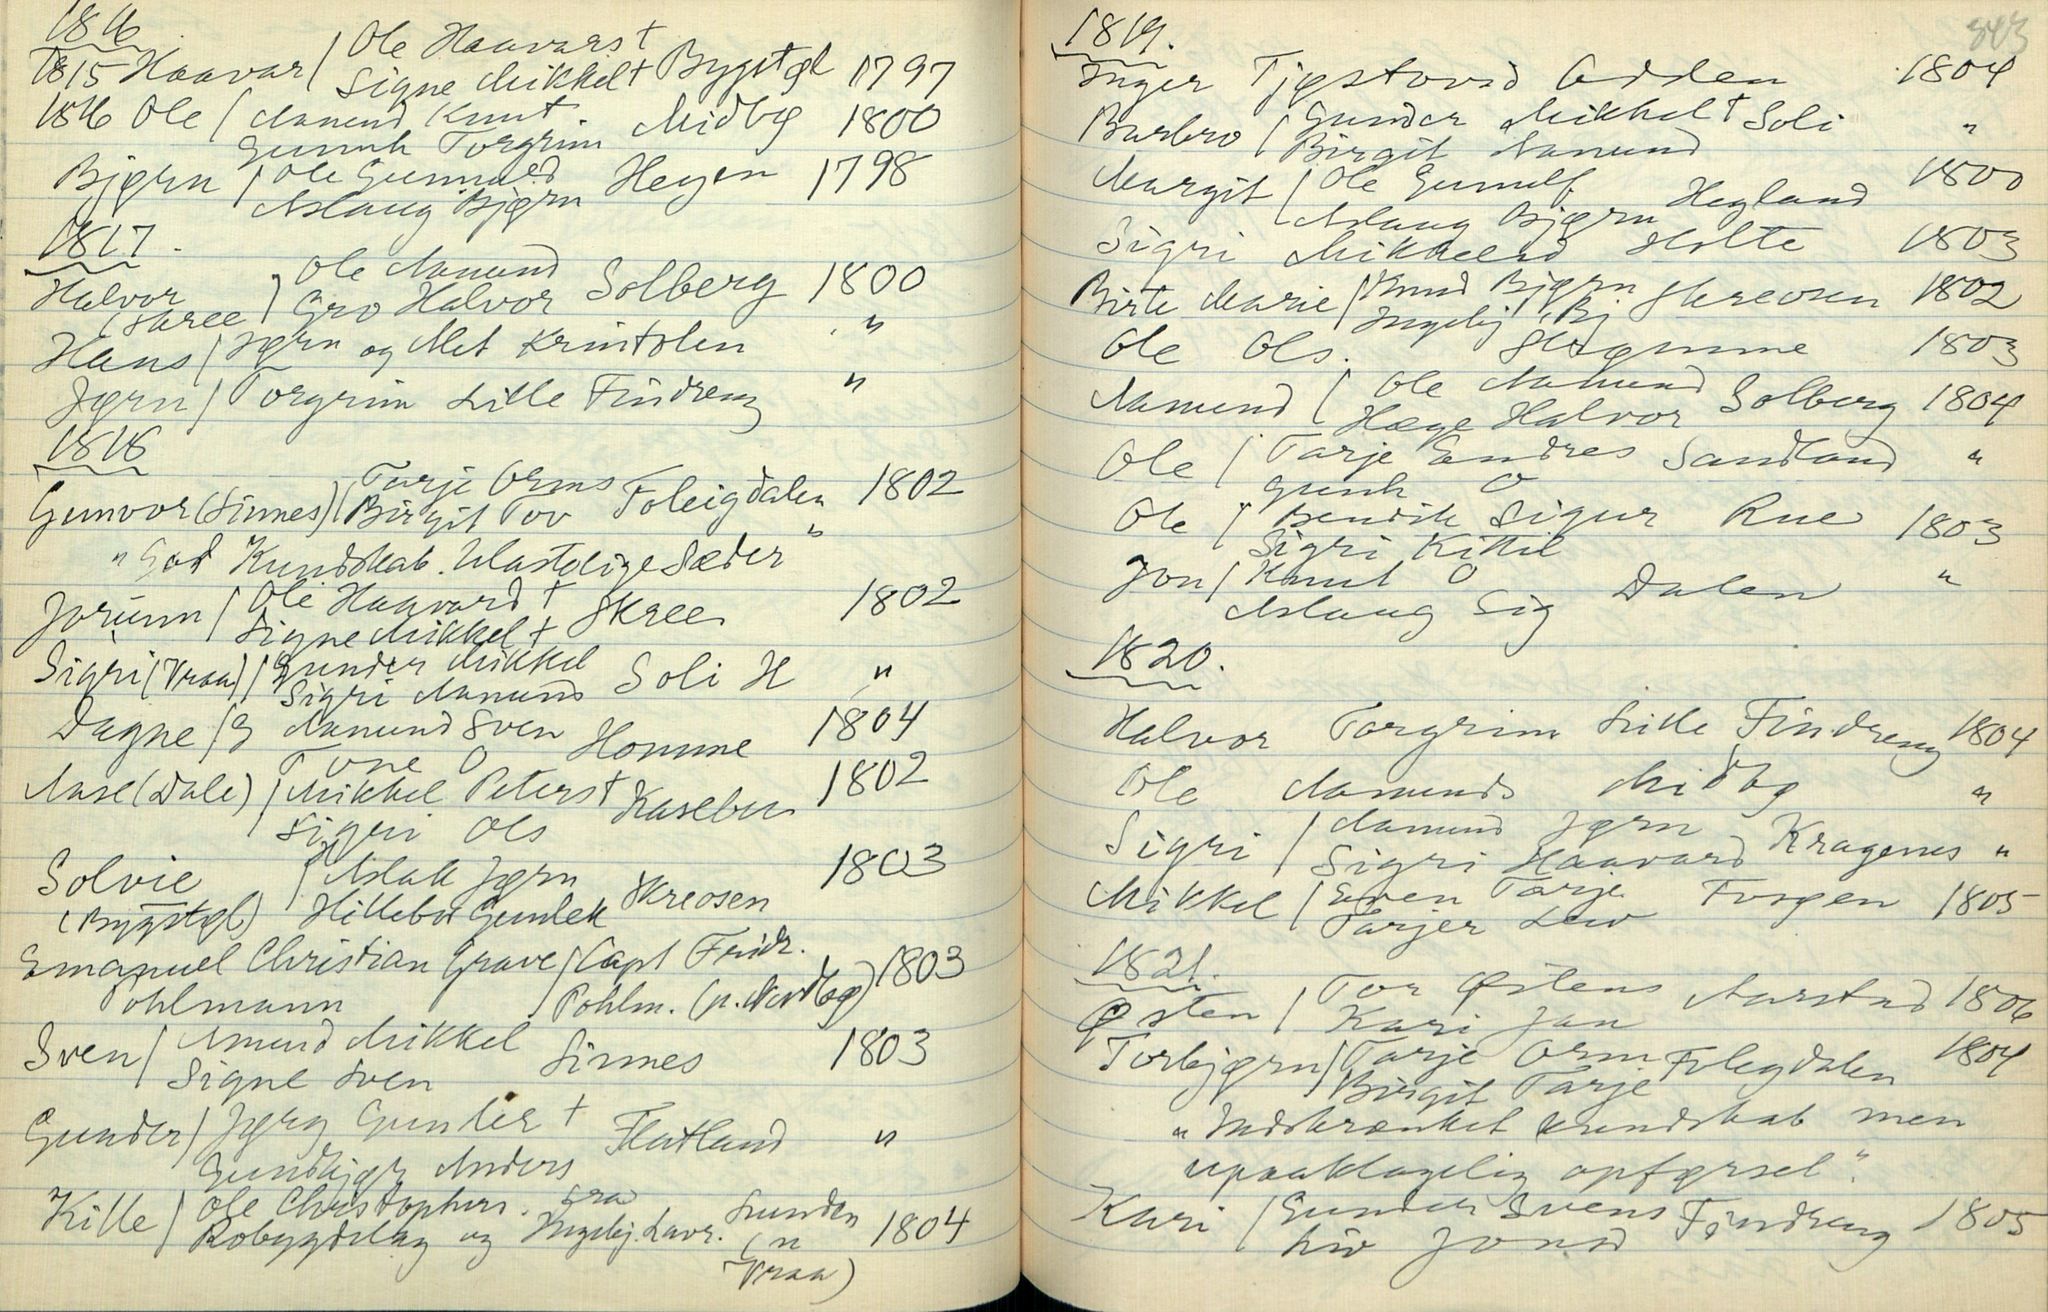 1816
1815 Haavar / Ole Haavars +
Signe Mikkel + Bygstøl 1797
1816 Ole / Aamund Knut Midbø 1800
Gunnh Torgrim
Bjørn / Ole Gunnulfd Heyen 1798
Aslaug Bjørn
1817.
Halvor / Ole Aamund Solberg 1800
(Skree Gro Halvor
Hans / Jørn og Met Krintolen "
Jørn / Torgrim Lille Findreng "
1818
Gunvor (Sinnes) / Tarje Orms Foleigdalen 1802
Birgit Tov
" God Kundskab. Ulastelige Sæder "
Jorunn / Ole Haavard + Skree 1802
Signe Mikkel +
Sigri (Vraa) / Gunder Mikkel Soli H "
Sigri Aamund
Dagne / G Aamund Sven Homme 1804
Tone O
Aase (Dale) / Mikkel Peters + Kasebu 1802
Sigri Ols
Solvie / Aslak Jørn Skreosen 1803
(Bygstøl) Hillebor Gunlek
Emanuel Christian Grave / Capt Fridr. 1803
Pohlmann Pohlm. (n. Nordbø)
Sven / Amund Mikkel Sinnes 1803
Signe Sven
Gunder / Jørg Gunder + Flatland "
Gunbjør Anders
Kille / Ole Christophers. fra Lunden 1804
Robygdelag og Ingebj. Lavr. (n
Vraa)
343
1819.
Inger Tjøstovsd Odden 1804
Barbro / Gunder Mikkel + Soli "
Birgit Aamund
Margit / Ole Gunulf Hegland 1800
Aslaug Bjørn
Sigri Mikkelsd Holte 1803
Birte Marie / Knud Bjørn Skreosen 1802
Ingebj. Bj
Ole Ols. Skomme 1803
Aamund / Ole Aamund Solberg 1804
Hæge Halvor
Ole / Tarje Endres Sandland "
Gunh O
Ole / Bendik Sigur Rue 1803
Sigri Kittil
Jon / Knut O Dalen "
Aslaug Sig
1820.
Halvor Torgrim Lille Findreng 1804
Ole Aamunds Midbø "
Sigri / Aamund Jørn Kragenes "
Sigri Haavard
Mikkel / Even Tarje Frogen 1805
Tarjer Lew
1821.
Østen / Tor Østens Aarstad 1806
Kari Jan
Torbjørn / Tarje Orm Folegdalen 1804
Birgit Tarje
" Indskrænket kundskab men
upaaklagelig opførsel."
Kari / Gunder Svens Findreng 1805
Liv Jonsd